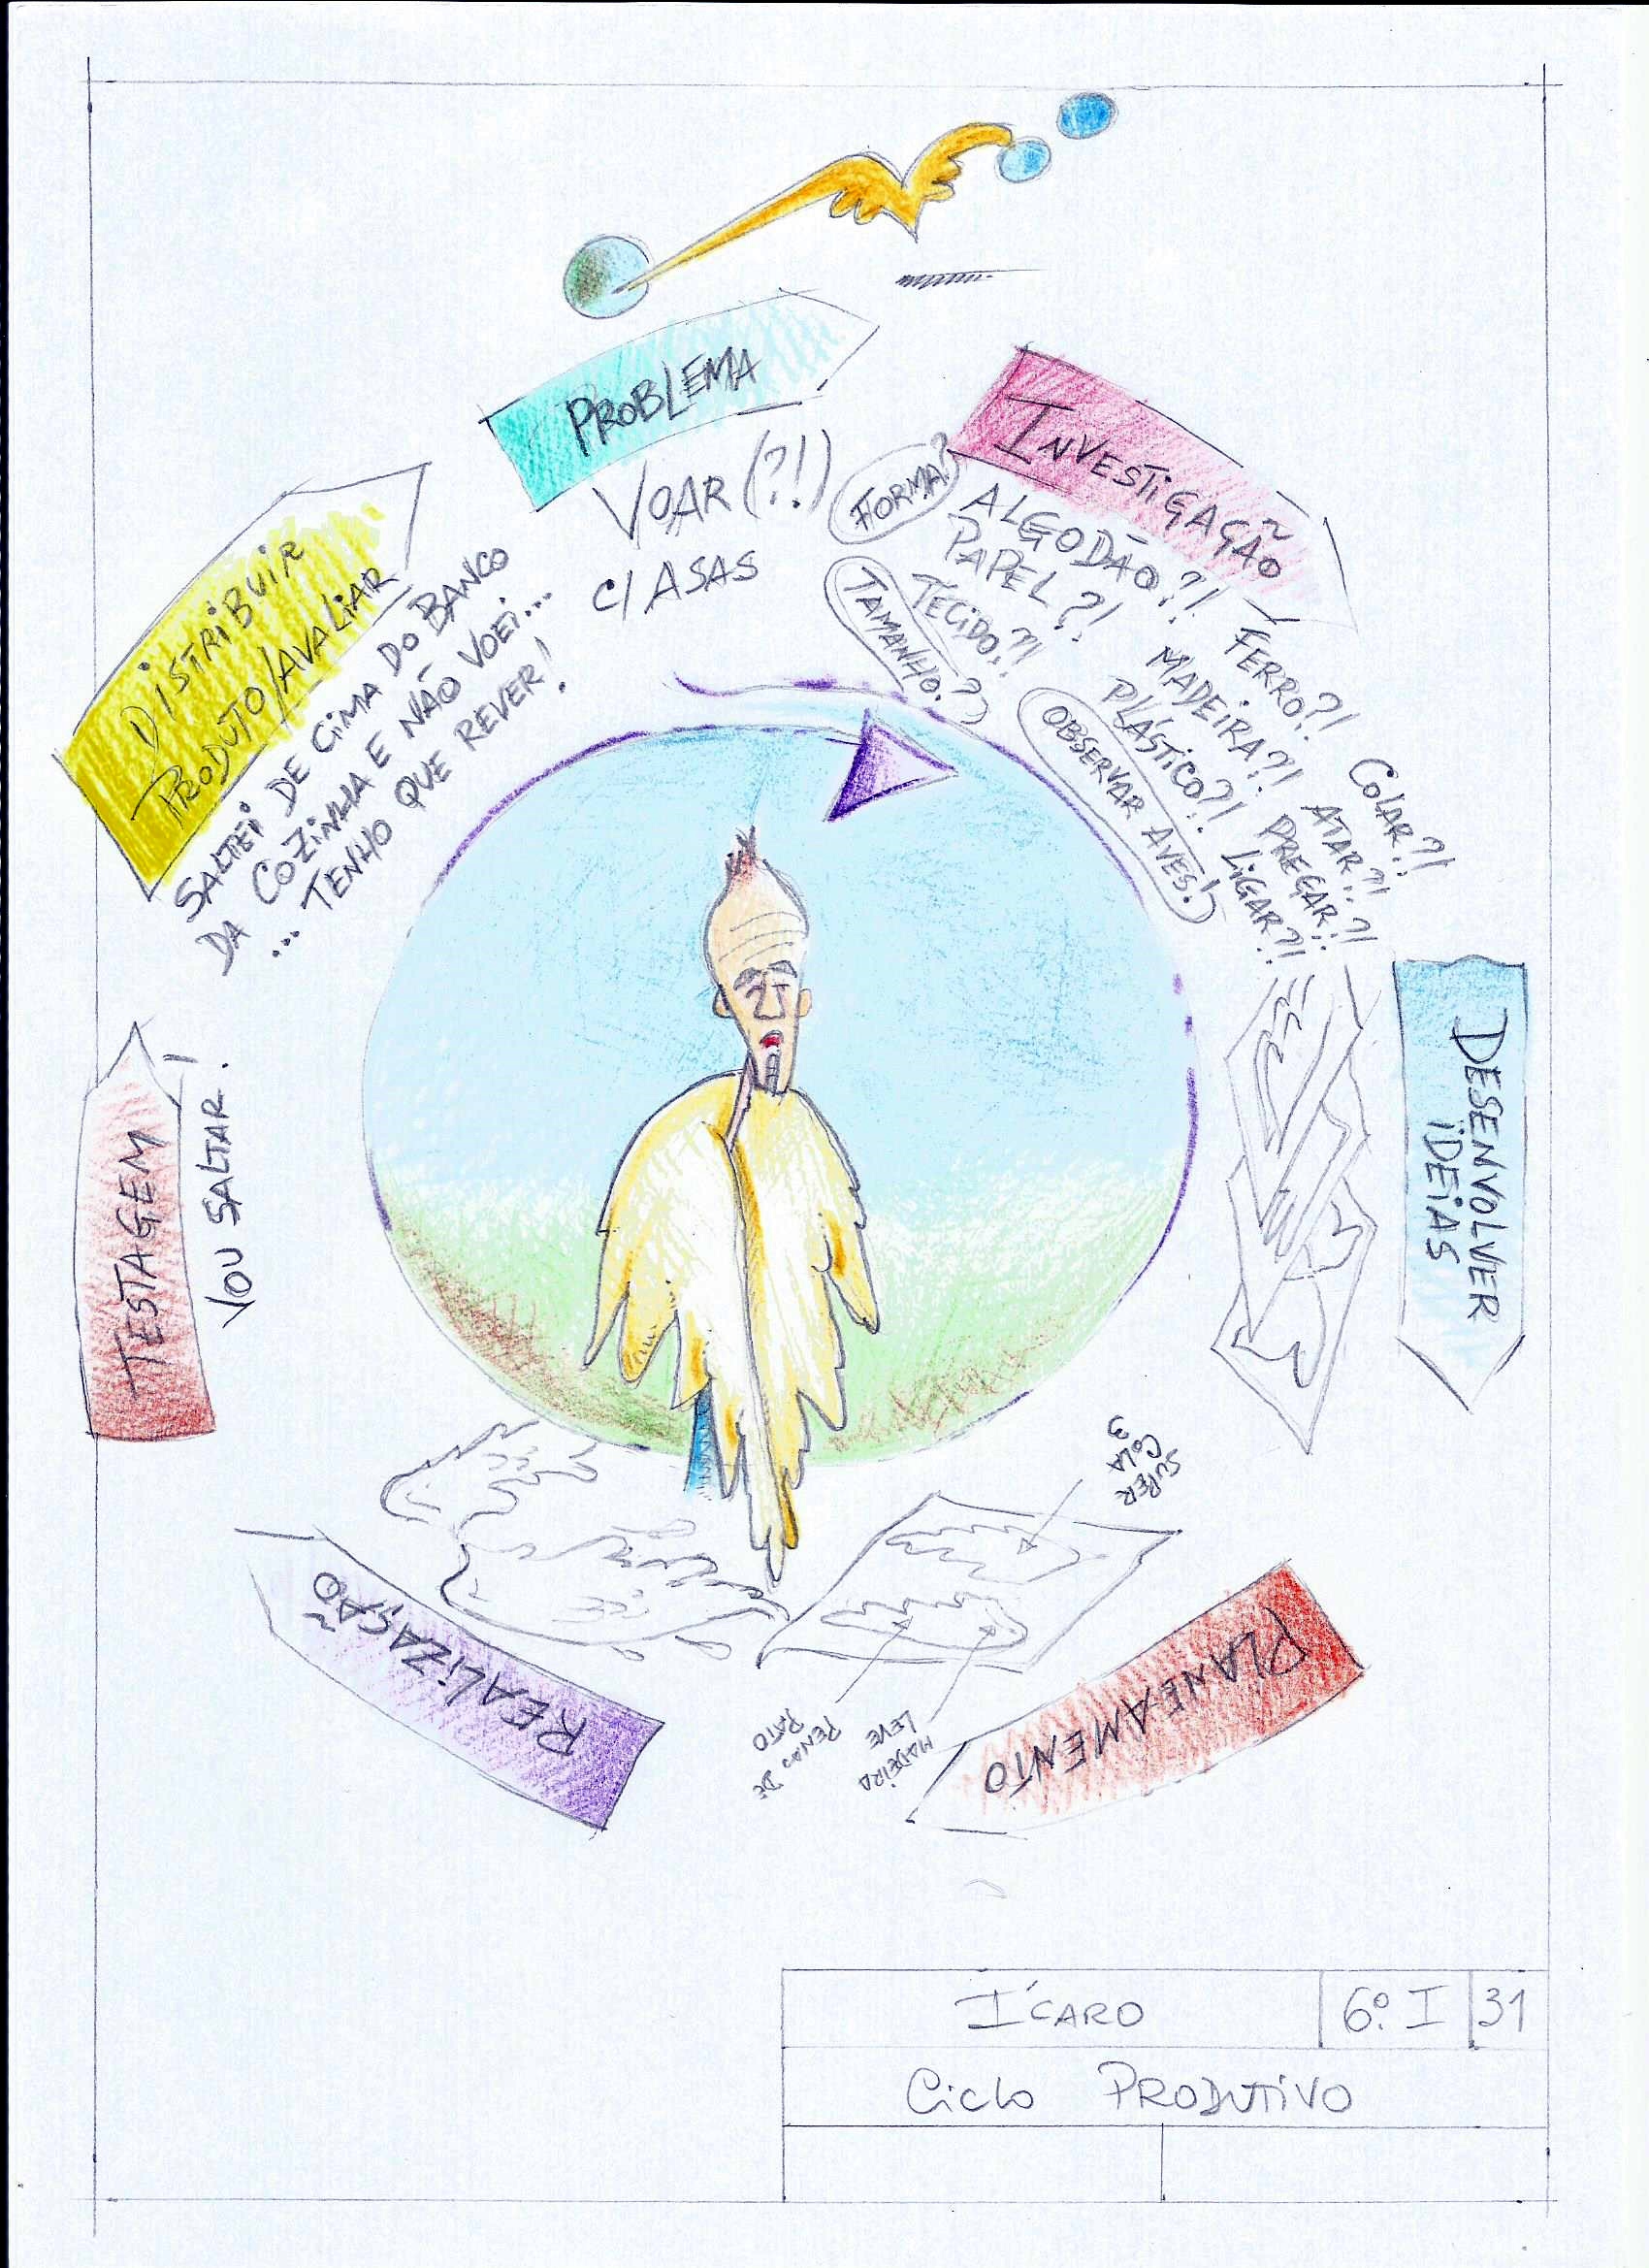 PROBLEMA
VOAR (?!)
C/ ASAS
INVESTIGAÇÃO
FORMA?
ALGODÃO?!
PAPEL?!
TECIDO?!
TAMANHO?
FERRO?!
MADEIRA?!
PLÁSTICO?!
OBSERVAR AVES!
COLAR?!
ATAR?!
PREGAR?!
LIGAR?!
DESENVOLVER
IDEIAS
PLANEAMENTO
SUPER
COLA
3
MADEIRA
LEVE
PENAS DE
PATO
REALIZAÇÃO
TESTAGEM
VOU SALTAR!
DISTRIBUIR
PRODUTO/AVALIAR
SALTEI DE CIMA DO BANCO
DA COZINHA E NÃO VOEI...
... TENHO QUE REVER!
ÍCARO
6º I
31
CICLO PRODUTIVO